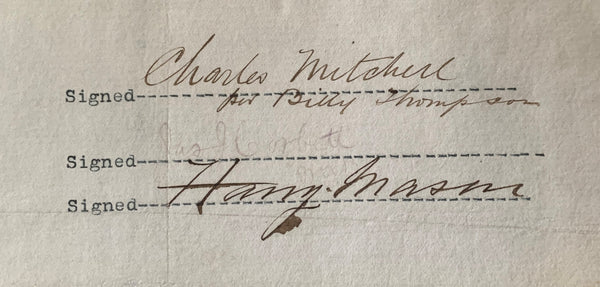 Charles Mitchell
Signed
per Billy Thompson
Signed
Signed Harry Mason